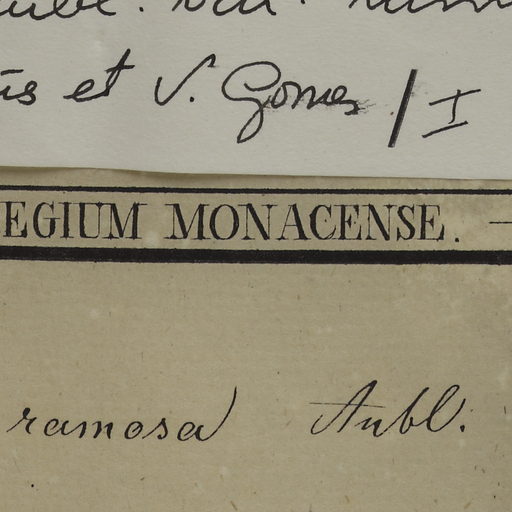 et V. Gomes / I
EGIUM MONACENSE.
ramosa Aubl.